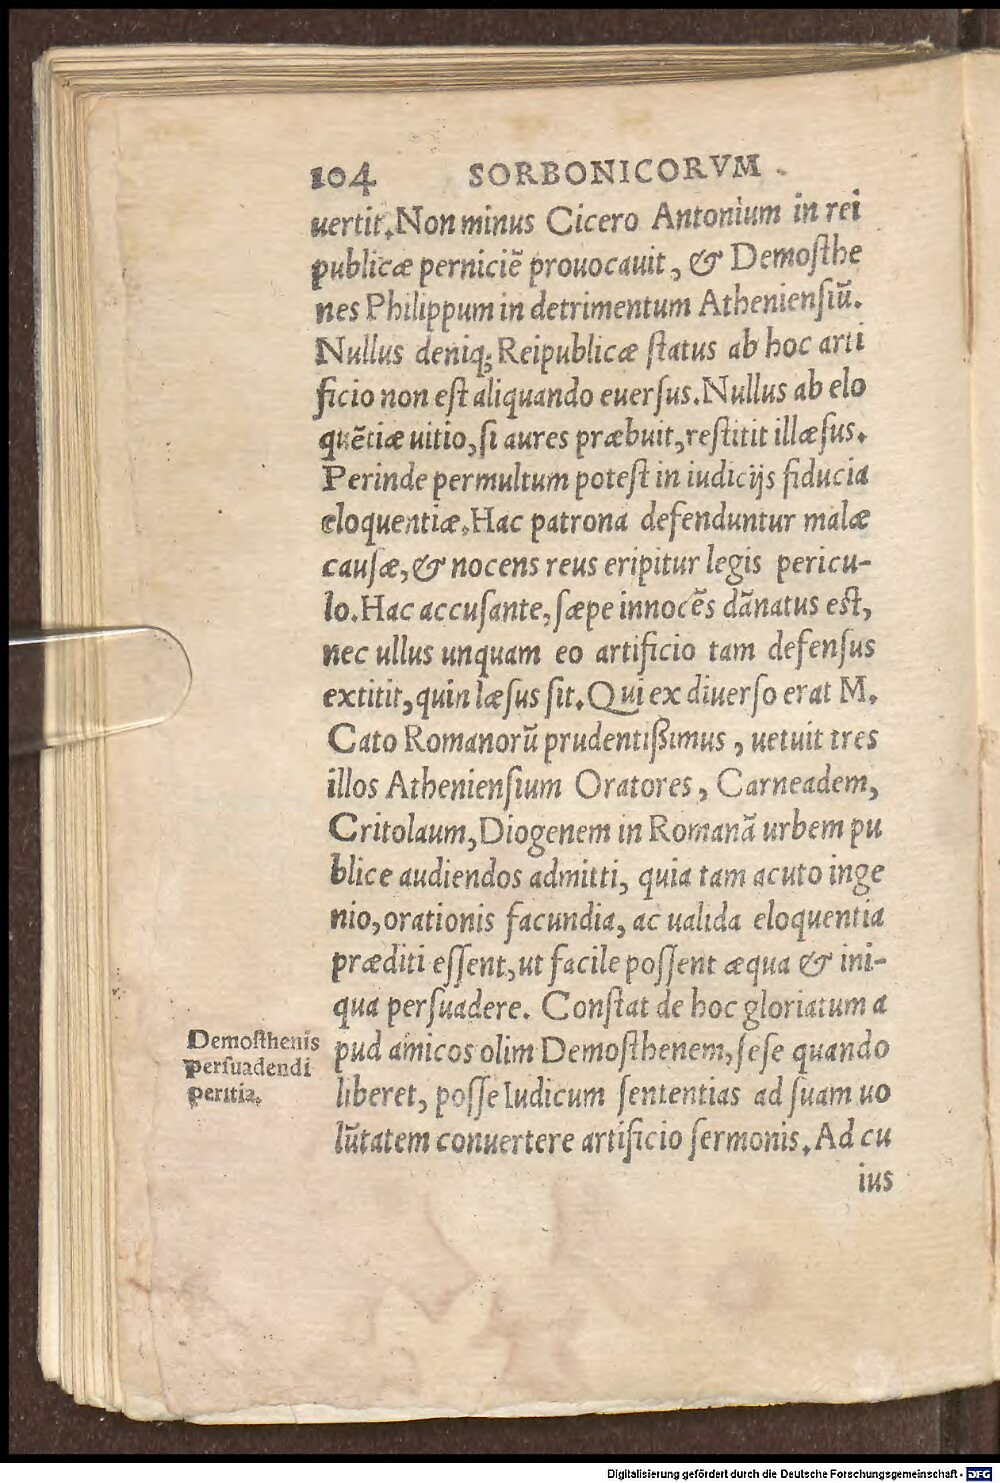 104 SORBONICORVM
uertit. Non minus Cicero Antonium in rei
publicæ perniciē prouocauit, & Demoſthe
nes Philippum in detrimentum Athenienſiū.
Nullus deniq; Reipublicæ ſtatus ab hoc arti
ficio non eſt aliquando euerſus. Nullus ab elo
quētiæ uitio, ſi aures præbuit, reſtitit illæſus.
Perinde permultum poteſt in iudicijs fiducia
eloquentiæ. Hac patrona defenduntur malæ
cauſæ, & nocens reus eripitur legis pericu-
lo. Hac accuſante, ſæpe innocēs dānatus eſt,
nec ullus unquam eo artificio tam defenſus
extitit, quin læſus ſit. Qui ex diuerſo erat M.
Cato Romanorū prudentißimus, uetuit tres
illos Athenienſium Oratores, Carneadem,
Critolaum, Diogenem in Romanā urbem pu
blice audiendos admitti, quia tam acuto inge
nio, orationis facundia, ac ualida eloquentia
præditi eſſent, ut facile poſſent æqua & ini-
qua perſuadere. Conſtat de hoc gloriatum a
pud amicos olim Demoſthenem, ſeſe quando
liberet, poſſe Iudicum ſententias ad ſuam uo
lūtatem conuertere artificio ſermonis. Ad cu
ius
Demoſthenis
perſuadendi
peritia.
Digitalisierung gefördert durch die Deutsche Forschungsgemeinschaft - DFG